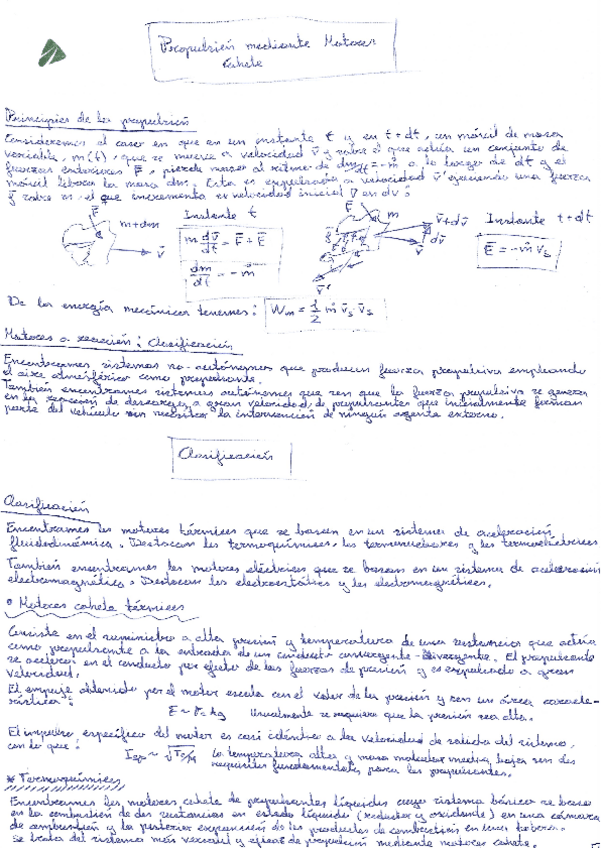 Propulsión mediante Motores
cohete
Principios de la propulsión
Consideremos el caso en que en un instante t y en t+dt, un móvil de masa
variable, m(t), que se mueve a velocidad v̄ y sobre el que actúa un conjunto de
fuerzas exteriores F̄, pierde masa al ritmo de dm/dt = -ṁ a lo largo de dt y el
móvil libera la masa dm. Esta es expulsada a velocidad v̄' ejerciendo una fuerza
sobre m el que incrementa su velocidad inicial v̄ en dv̄:
F̄ m+dm v̄
Instante t
m dv̄/dt = F̄ + Ē
dm/dt = -ṁ
F̄ m v̄+dv̄ dv̄ v̄ v̄'
Instante t+dt
Ē = -ṁ v̄s
De la energía mecánica tenemos: Wm = 1/2 ṁ v̄s v̄s
Motores a reacción: Clasificación
Encontramos sistemas no-autónomos que producen fuerza propulsiva empleando
el aire atmosférico como propulsante.
También encontramos sistemas autónomos que son que la fuerza propulsiva se genera
en la reacción de descarga a gran velocidad de propulsantes que inicialmente forman
parte del vehículo sin necesitar la intervención de ningún agente externo.
Clasificación
Clasificación
Encontramos los motores térmicos que se basan en un sistema de aceleración
fluidodinámica. Destacan los termoquímicos, los termonucleares y los termoeléctricos
También encontramos los motores eléctricos que se basan en un sistema de aceleración
electromagnético. Destacan los electrostáticos y los electromagnéticos.
• Motores cohete térmicos
Consiste en el suministro a alta presión y temperatura de una sustancia que actúa
como propulsante a la entrada de un conducto convergente-divergente. El propulsante
se acelera en el conducto por efecto de las fuerzas de presión y es expulsado a gran
velocidad.
El empuje obtenido por el motor escala con el valor de la presión y con un área caracte-
rística: Usualmente se requiere que la presión sea alta.
El impulso específico del motor es casi idéntico a la velocidad de salida del sistema,
con lo que: Isp ~ √Tc/M La temperatura alta y masa molecular media baja son dos
requisitos fundamentales para los propulsantes.
* Termoquímicos
Encontramos los motores cohete de propulsantes líquidos cuyo sistema básico se basa
en la combustión de dos sustancias en estado líquido (reductor y oxidante) en una cámara
de combustión y la posterior expansión de los productos de combustión en una tobera.
Se trata del sistema más versátil y eficaz de propulsión mediante motores cohete.